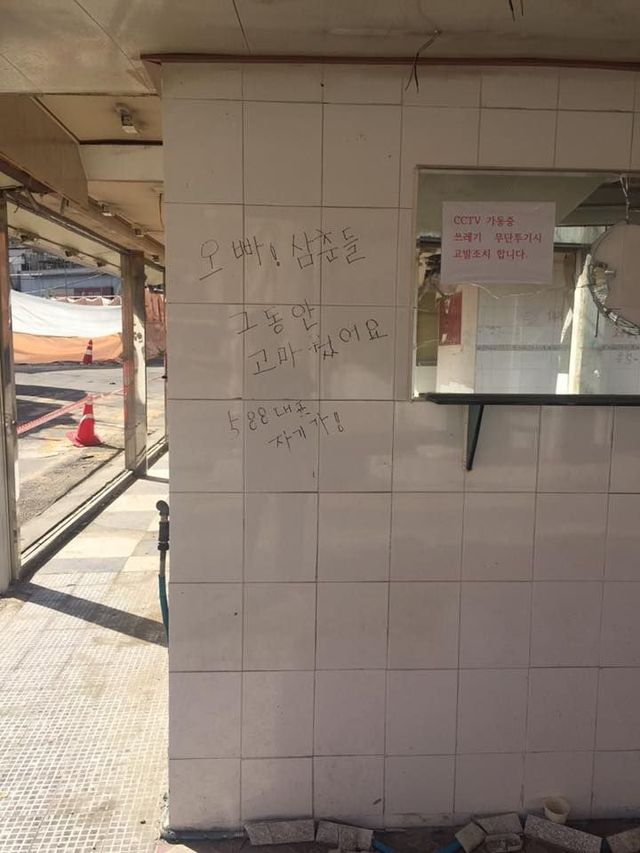 오빠! 삼춘들
그동안
고마웠어요
588대표
자기가!
CCTV 가동중
쓰레기 무단투기시
고발조시 합니다.